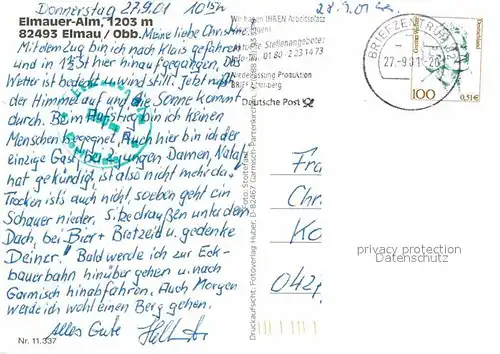 Donnerstag 27.9.01 10 15h
Elmauer-Alm, 1203 m
82493 Elmau / Obb. Meine liebe Christine.
Mit dem Zug bin ich nach Klais gefahren
und in 1¾ St hier hinauf gegangen. Das
Wetter ist bedeckt u. windstill. Jetzt reißt
der Himmel auf und die Sonne kommt
durch. Beim Aufstieg bin ich keinen
Menschen begegnet. Auch hier bin ich der
einzige Gast bei 2 jungen Damen,
hat gekündigt, ist also nicht mehr da.
Trocken ist's auch nicht, soeben geht ein
Schauer nieder, sitze draußen unter dem
Dach, bei Bier + Brotzeit u. gedenke
Deiner. Bald werde ich zur Eck-
bauerbahn hinüber gehen u. nach
Garmisch hinabfahren. Auch Morgen
werde ich wohl einen Berg gehen.
Alles Gute
Nr. 11.337
Wir haben IHREN Arbeitsplatz
Stellenangebote:
Tel. 01 80 - 2 23 14 73
Niederlassung Produktion
BRIEF
Deutsche Post
28.9.01
BRIEFZENTRUM
27-9.01-26
Deutschland
100
0,51€
Foto: Stottmeister
Druckaufsicht: Fotoverlag Huber, D-82467 Garmisch-Partenkirchen
Fra
Chr.
Ko
042
privacy protection
Datenschutz